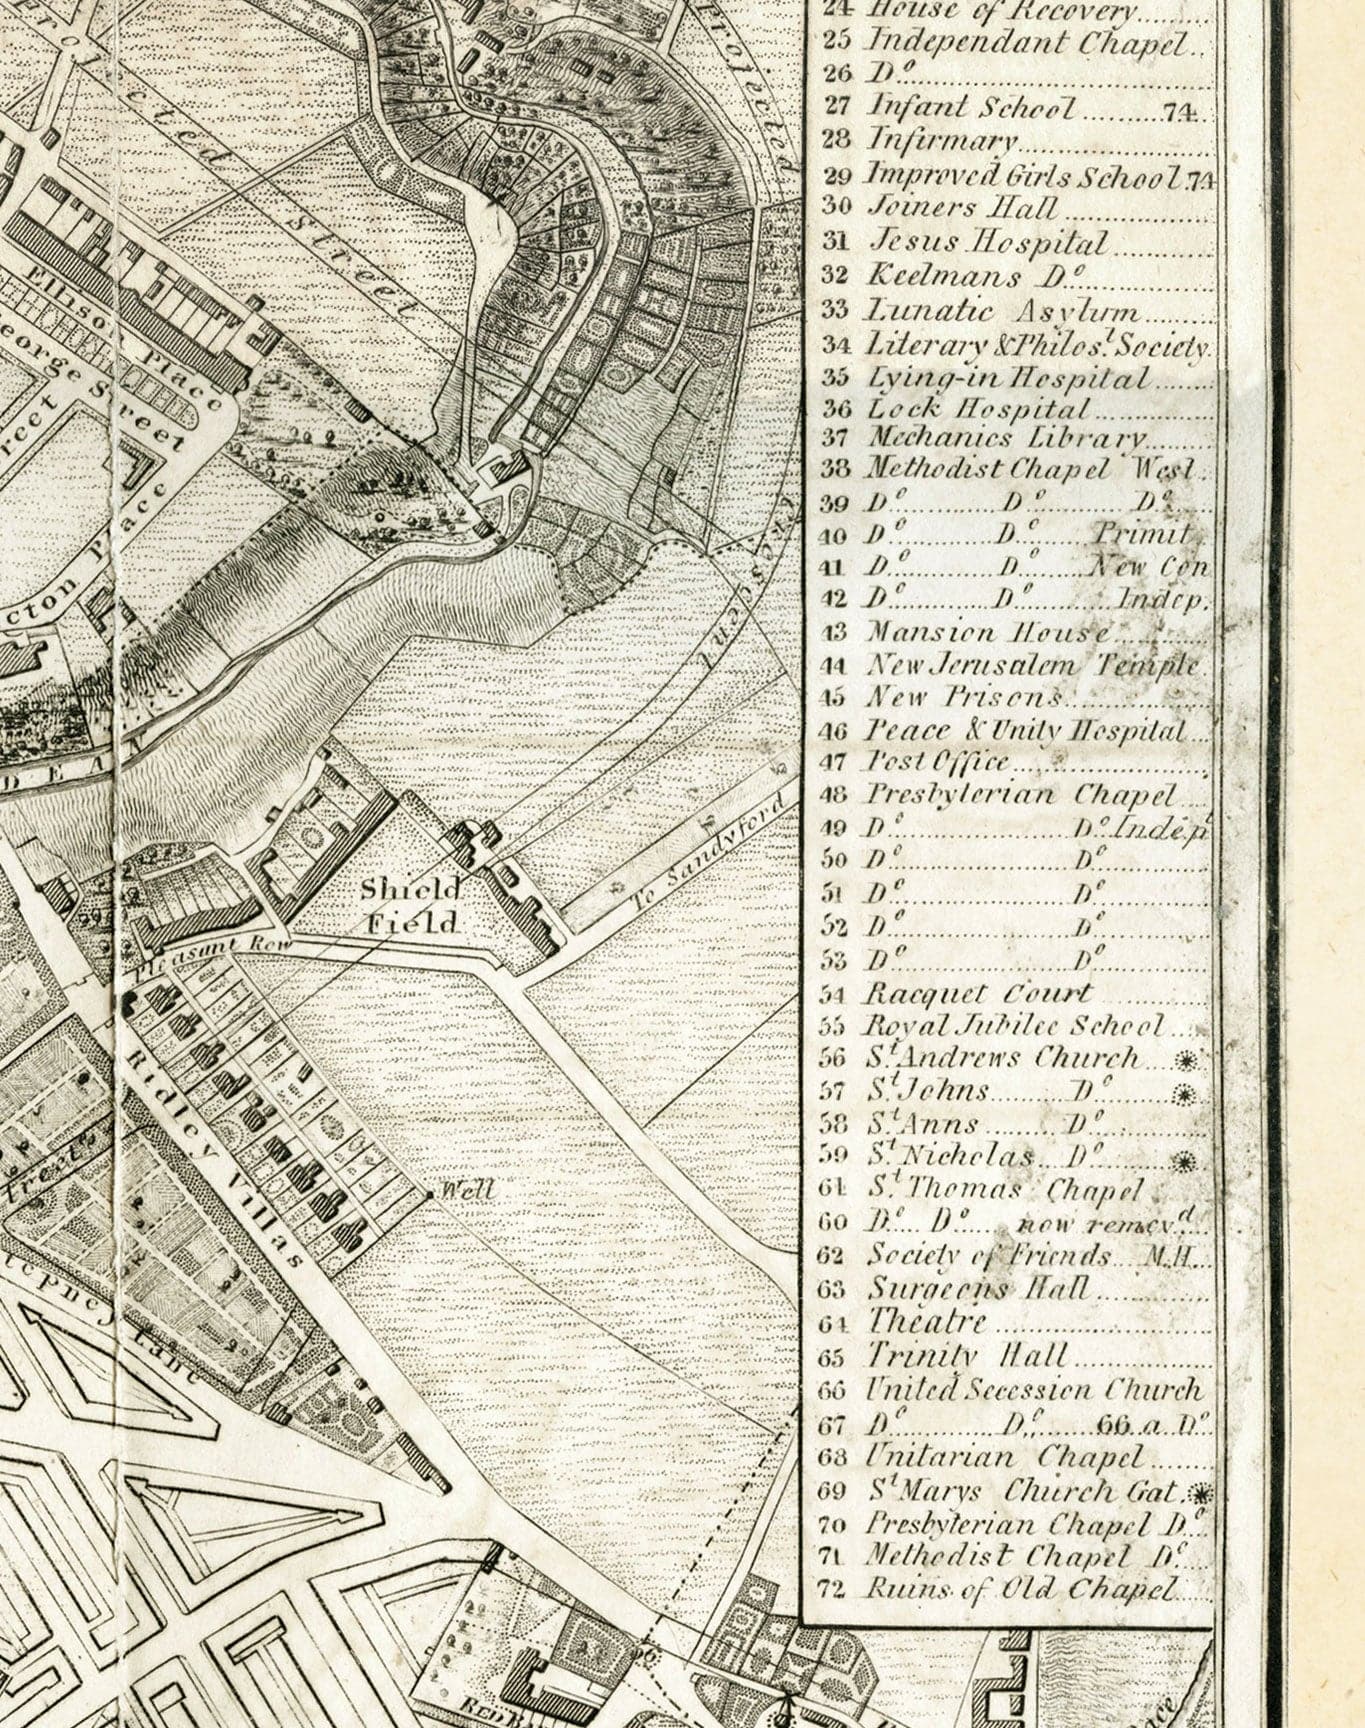 24 House of Recovery.........
25 Independant Chapel..
26 Do.
27 Infant School..........74.
28 Infirmary
29 Improved Girls School 74
30 Joiners Hall
31 Jesus Hospital
32 Keelmans Do.
33 Lunatic Asylum
34 Literary & Philost. Society.
35 Lying-in Hospital
36 Lock Hospital
37 Mechanics Library
38 Methodist Chapel Wesl.
39 Do. Do. Do.
40 Do. Do. Primit.
41 Do. Do. New Con
42 Do. Do. Indep.
43 Mansion House
44 New Jerusalem Temple.
45 New Prisons
46 Peace & Unity Hospital
47 Post Office
48 Presbyterian Chapel
49 Do. Do. Indept
50 Do. Do.
51 Do. Do.
52 Do. Do.
53 Do. Do.
54 Racquet Court
55 Royal Jubilee School
56 St. Andrews Church
57 St. Johns Do.
58 St. Anns Do.
59 St. Nicholas Do.
61 St. Thomas Chapel
60 Do. Do. now remevd.
62 Society of Friends M.H.
63 Surgeons Hall
64 Theatre
65 Trinity Hall
66 United Secession Church
67 Do. Do. 66.a. Do.
68 Unitarian Chapel
69 St. Marys Church Gat.
70 Presbyterian Chapel Do.
71 Methodist Chapel Do.
72 Ruins of Old Chapel
Projected
Projected Street
Crescent
Ellison Place
eorge Street
reet
cton Place
DEAN
Shield
Field
To Sandyford
Pleasant Row
Ridley Villas
Well
treet
tepney Lane
26
Red Ba
ace